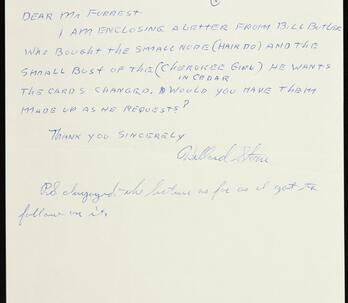 DEAR MR FORREST
I AM ENCLOSING A LETTER FROM BILL BUTLER
WAS BOUGHT THE SMALL NUDE (HAIRDO) AND THE
SMALL BUST OF THE (CHEROKEE GIRL) HE WANTS
IN CEDAR
THE CARDS CHANGED. WOULD YOU HAVE THEM
MADE UP AS HE REQUESTS?
THANK YOU SINCERELY
Willard Stone
PS enjoyed the as far as I got to
follow in it.